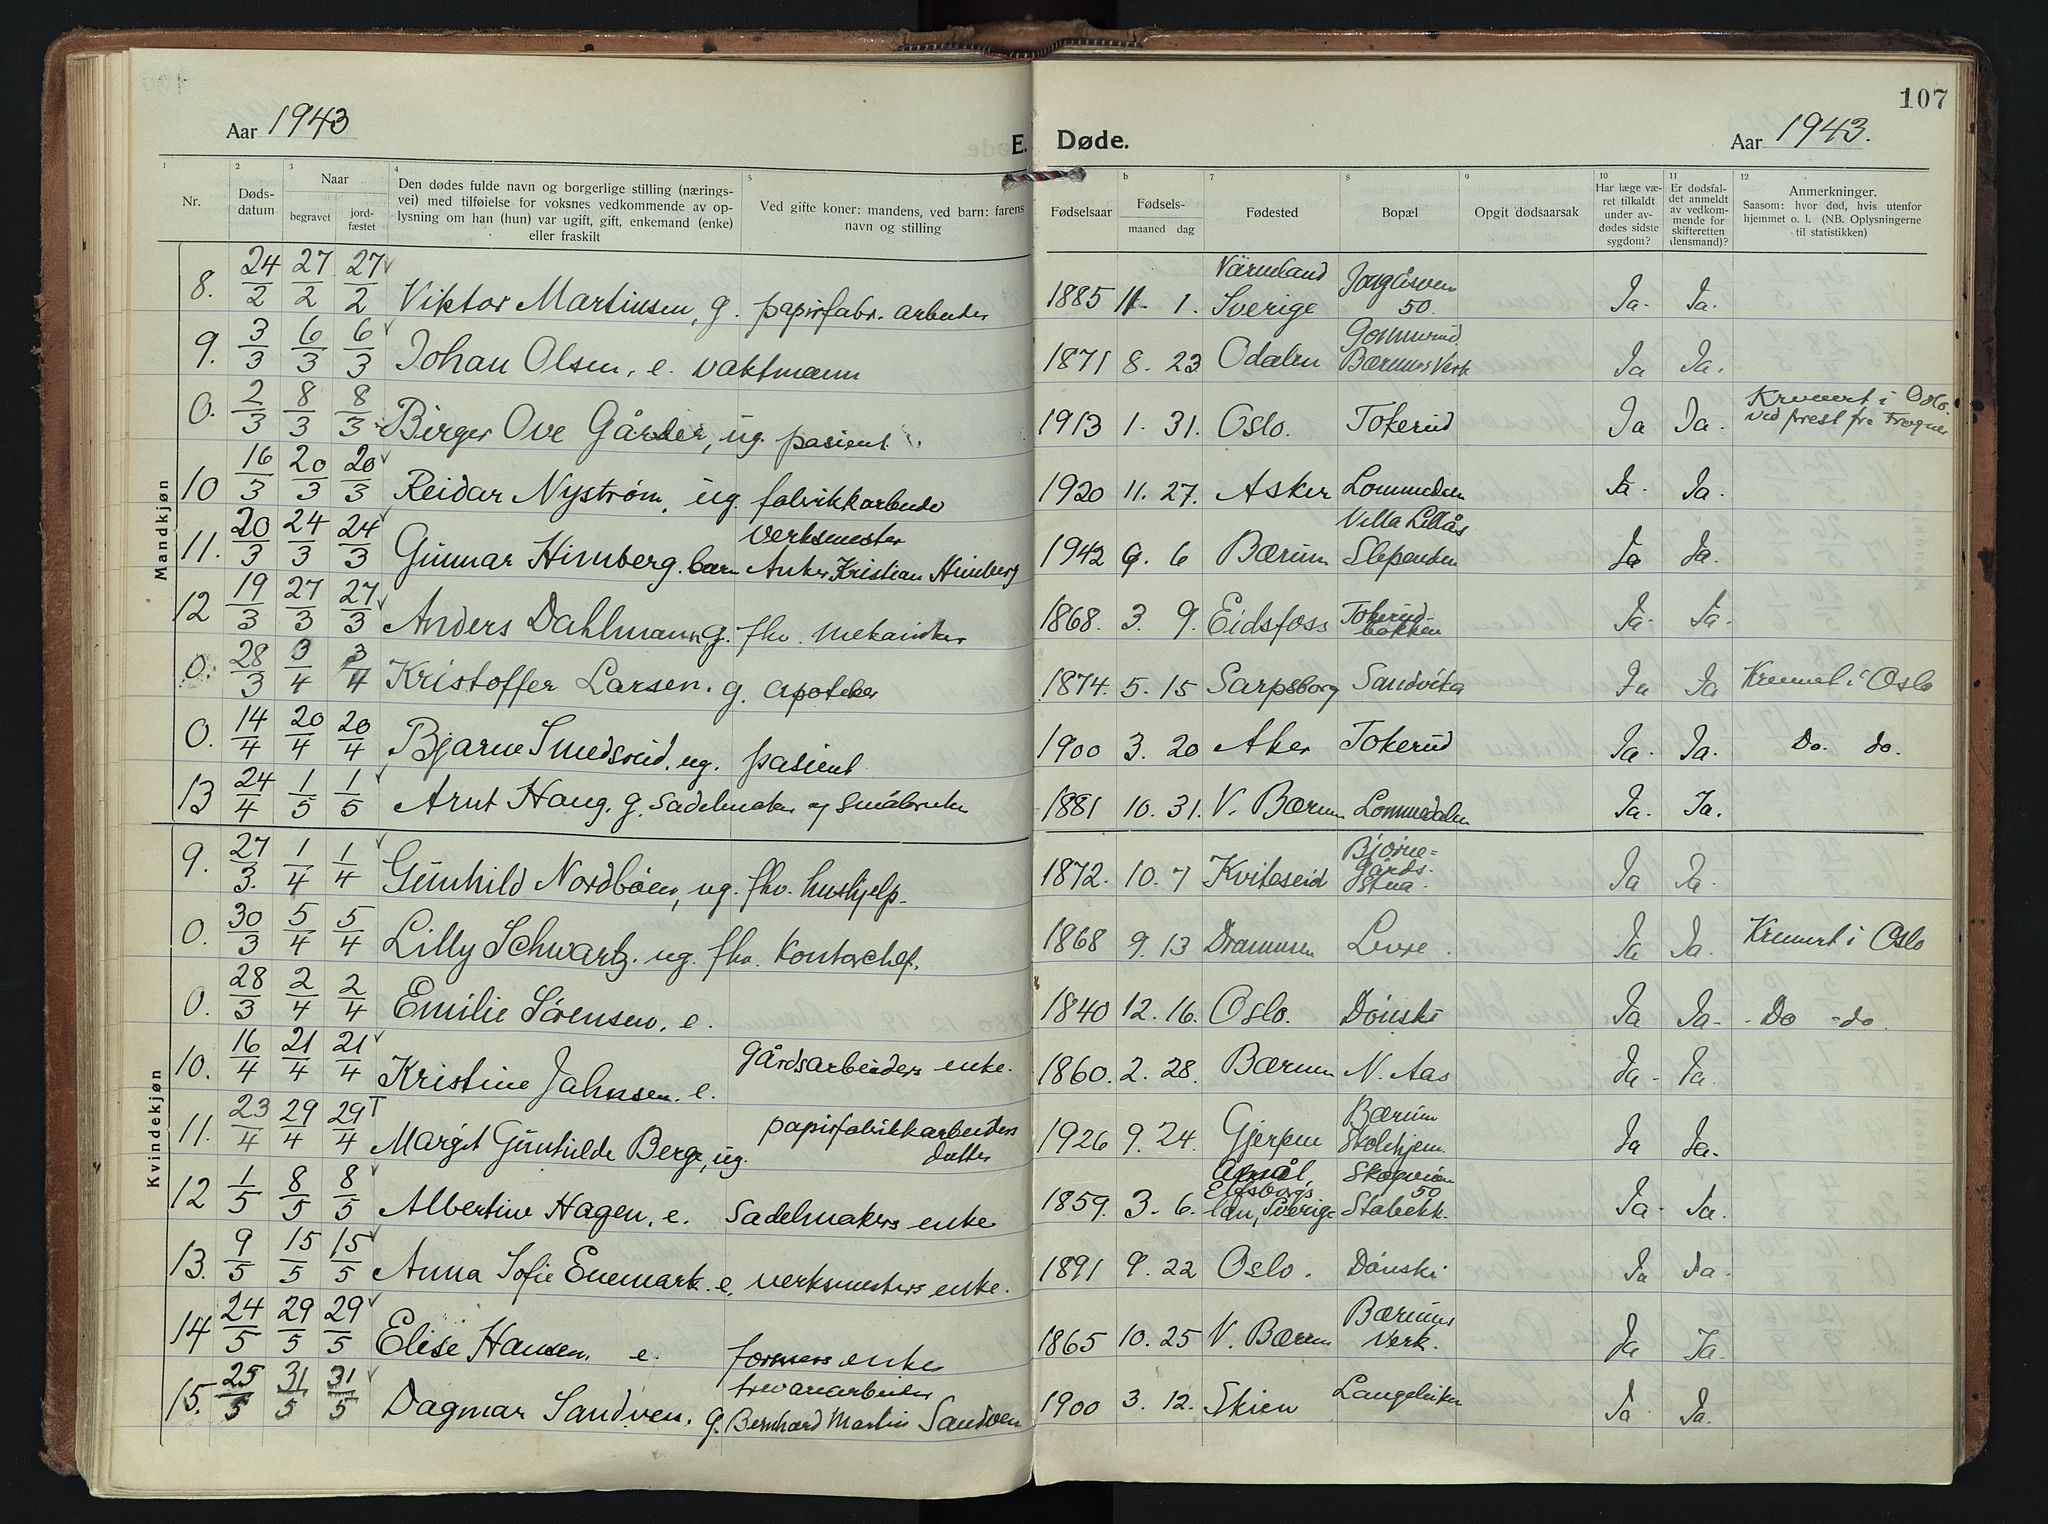 107
Aar 1943
E. Døde.
Aar 1943.
1 2 3 4 5 b 7 8 9 10 11 12
Nr.
Døds-
datum
Naar
begravet
jord-
fæstet
Den dødes fulde navn og borgerlige stilling (nærings-
vei) med tilføielse for voksnes vedkommende av op-
lysning om han (hun) var ugift, gift, enkemand (enke)
eller fraskilt
Ved gifte koner: mandens, ved barn: farens
navn og stilling
Fødselsaar
Fødsels-
maaned dag
Fødested
Bopæl
Opgit dødsaarsak
Har læge væ-
ret tilkaldt
under av-
dødes sidste
sygdom?
Er dødsfal-
det anmeldt
av vedkom-
mende for
skifteretten
(lensmand)?
Anmerkninger.
Saasom: hvor død, hvis utenfor
hjemmet o. l. (NB. Oplysningerne
til statistikken)
Mandkjøn
8. 24/2 27/2 27/2 Viktor Martinsen, g. papirfabr. arbeider 1885 11. 1. Värmland Sverige 50. Ja. Ja.
9. 3/3 6/3 6/3 Johan Olsen, e. vaktmann 1871 8. 23 Odalen Gommerud Bærums Verk Ja Ja.
0. 2/3 8/3 8/3 Birger Ove Gårder, ug. pasient 1913 1. 31. Oslo. Tokerud Ja Ja. Kremert i Oslo. ved prest fra Frogner
10 16/3 20/3 20/3 Reidar Nystrøm, ug. fabrikkarbeider 1920 11. 27. Asker Lommedalen Ja. Ja.
11. 20/3 24/3 24/3 Gunnar Himberg. barn verksmester Anker Kristian Himberg 1942 9. 6 Bærum Villa Lillås Slependen Ja Ja.
12 19/3 27/3 27/3 Anders Dahlmann, g. fhv. mekaniker 1868. 3. 9. Eidsfoss Tokerud- bakken Ja. Ja.
0. 28/3 3/4 3/4 Kristoffer Larsen. g. apoteker 1874. 5. 15 Sarpsborg Sandvika Ja Ja Kremert i Oslo
0. 14/4 20/4 20/4 Bjarne Smedsrud, ug. pasient 1900 3. 20 Aker Tokerud Ja. Ja. Do. do.
13 24/4 1/5 1/5 Arnt Haug. g. sadelmaker og småbruker 1881 10. 31. V. Bærum Lommedalen Ja. Ja.
Kvindekjøn
9. 27/3. 1/4 1/4 Gunhild Nordbøen, ug. fhv. hushjelp. 1872. 10. 7 Kviteseid Bjørne= Gårds- stua. Ja Ja.
0. 30/3 5/4 5/4 Lilly Schwartz. ug. fhv. kontorchef. 1868 9. 13 Drammen Ja Ja. Kremert i Oslo
0. 28/3 2/4 2/4 Emilie Sørensen, e. 1840 12. 16. Oslo. Dønski Ja Ja. Do do.
10. 16/4 21/4 21/4 Kristine Jahnsen. e. gårdsarbeiders enke. 1860. 2. 28. Bærum N. Aas Ja. Ja.
11. 23/4 29/4 29/4 Margit Gunhilde Berge, ug. papirfabrikkarbeiders datter 1926 9. 24. Gjerpen Bærum Skolehjem. Ja Ja.
12 1/5 8/5 8/5 Albertine Hagen, e. Sadelmakers enke 1859. 3. 6. Åmål, Elfsborgs län, Sverige Skogveien 50 Stabekk. Ja. Ja.
13. 9/5 15/5 15/5 Anna Sofie Enemark. e. verksmesters enke. 1891 9. 22 Oslo. Dønski Ja Ja.
14 24/5 29/5 29/5 Elise Hansen, e. formers enke 1865 10. 25 V. Bærum Bærums Verk. Ja Ja.
15. 25/5 31/5 31/5 Dagmar Sandven. g. trevarearbeider Bernhard Martin Sandven 1900 3. 12. Skien Ja. Ja.